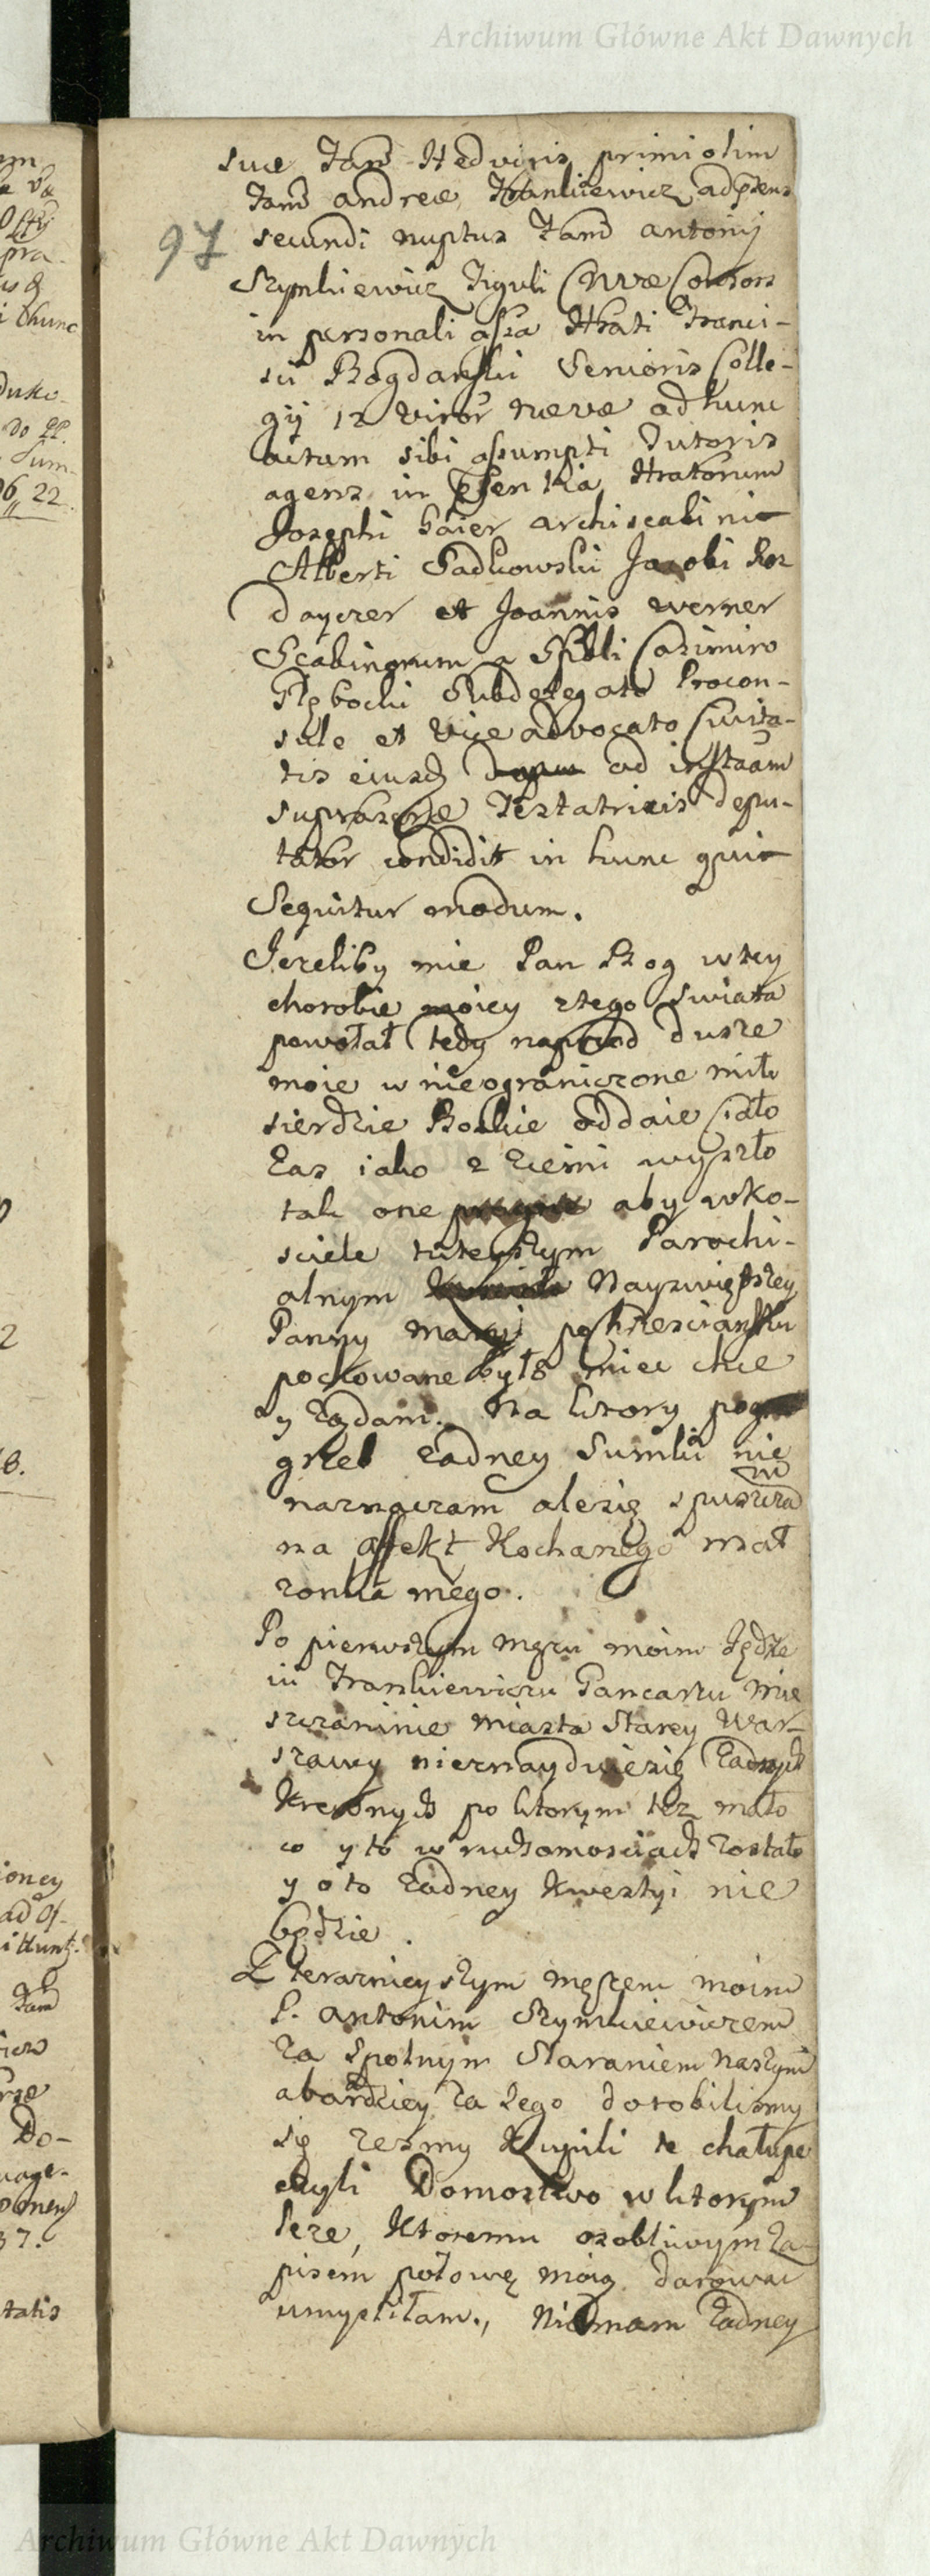 Archiwum Główne Akt Dawnych
97
suæ Famæ Hedvigis primi olim
Famæ Andreæ Frankiewicz ad præsens
secundi nuptus Famæ Antonij
Szymkiewicz Figuli CNVæ Consors
in personali assa Hnati Franci-
sci Bogdański Senioris Colle-
gij 12 viror NVævæ ad hunc
actum sibi assumpti Tutoris
agens in Pñsentia Hnatorum
Josephi Baier Archiscabini
Alberti Sadkowski Jacobi Roz
dayczer et Joannis Werner
Scabinorum a Spbli Casimiro
Głębocki Subdelegato Procon-
sule et Vice advocato Civita-
tis eiusd ad instaām
suprascræ Testatricis depu-
tator condidit in hunc qui
Sequitur modum.
Jezeliby mie Pan Bog wtey
chorobie moiey ztego swiata
powołał tedy naprzod dusze
moie w nieograniczone miło
sierdzie Boskie oddaie Ciało
Zas iako z Ziemi wyszło
tak one aby wko-
sciele tuteyszym Parochi-
alnym Nayswiętszey
Panny Maryi po chrzesciansku
pochowane było miec chce
y Ządam. Na ktory pog
grzeb Zadney Sumki nie
naznaczam alesię zpuszczam
na affekt Kochanego mał
zonka mego.
Po pierwszym męzu moim Jędrze
iu Frankiewiczu Gancarzu Mie
szczaninie Miasta Starey War-
szawy nieznayduiesię Zadnych
Krewnych po ktorym tez mało
co y to w ruchomosciach zostało
y o to Zadney Kwestyi nie
będzie.
Z teraznieyszym męzem moim
P. Antonim Szymkiewiczem
Za Spolnym Staraniem naszym
abardziey Za Jego dorobilismy
się zesmy Kupili te chałupe
czyli Domostwo w ktorym
leze, Ktoremu osobliwym Za-
pisem połowę moią darowac
umysliłam., Niemam Zadney
Archiwum Główne Akt Dawnych